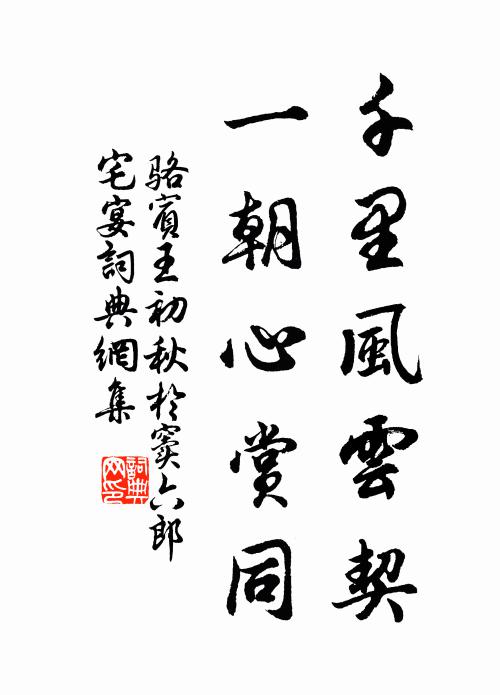 千里風雲契
一朝心賞同
駱賓王初秋於竇六郎
宅宴詞典網集
詞典
网印